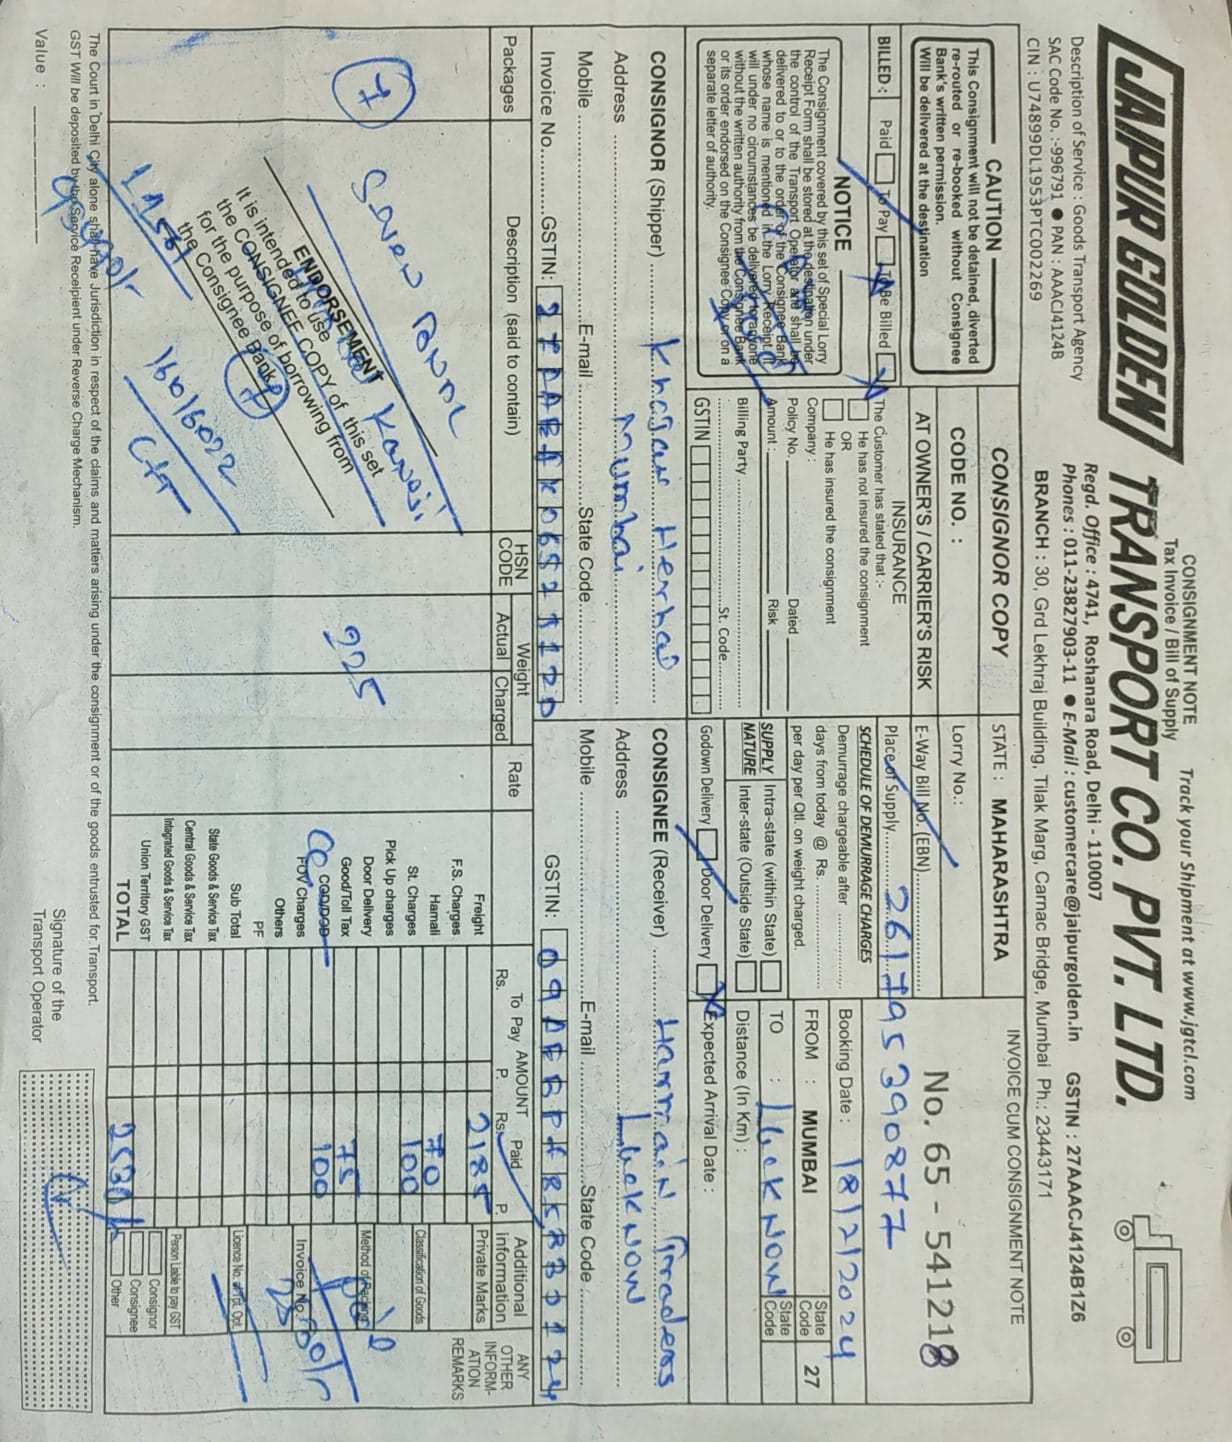 CONSIGNMENT NOTE
Tax Invoice / Bill of Supply
Track your Shipment at www.jgtcl.com
JAIPUR GOLDEN TRANSPORT CO. PVT. LTD.
Description of Service : Goods Transport Agency
SAC Code No. :-996791 ● PAN : AAACJ4124B
CIN : U74899DL1953PTC002269
Regd. Office : 4741, Roshanara Road, Delhi - 110007
Phones : 011-23827903-11 ● E-Mail : customercare@jaipurgolden.in GSTIN : 27AAACJ4124B1Z6
BRANCH : 30, Grd Lekhraj Building, Tilak Marg, Carnac Bridge, Mumbai Ph.: 23443171
CAUTION
This Consignment will not be detained, diverted
re-routed or re-booked without Consignee
Bank's written permission.
Will be delivered at the destination
CONSIGNOR COPY
STATE : MAHARASHTRA
INVOICE CUM CONSIGNMENT NOTE
CODE NO. :
Lorry No.:
No. 65 - 541218
AT OWNER'S / CARRIER'S RISK
E-Way Bill No. (EBN)
BILLED : Paid To Pay To Be Billed
INSURANCE
The Customer has stated that :-
He has not insured the consignment
OR
He has insured the consignment
Company :
Policy No. Dated
Amount : Risk
Billing Party
St. Code
GSTIN
Place of Supply 261795390877
SCHEDULE OF DEMURRAGE CHARGES
Demurrage chargeable after
days from today @ Rs.
per day per Qtl. on weight charged.
Booking Date : 18/2/2024
FROM : MUMBAI State Code 27
TO : Lucknow State Code
SUPPLY NATURE Intra-state (within State)
Inter-state (Outside State)
Distance (In Km) :
Godown Delivery Door Delivery Expected Arrival Date :
NOTICE
The Consignment covered by this set of Special Lorry
Receipt Form shall be stored at the destination under
the control of the Transport Operator and shall be
delivered to or to the order of the Consignee Bank
whose name is mentioned in the Lorry Receipt. It
will under no circumstances be delivered to anyone
without the written authority from the Consignee Bank
or its order endorsed on the Consignee Copy or on a
separate letter of authority.
CONSIGNOR (Shipper)
Address Mumbai
Mobile E-mail State Code
Invoice No. GSTIN:
CONSIGNEE (Receiver) Harmain Traders
Address Lucknow
Mobile E-mail State Code
GSTIN:
Packages
Description (said to contain)
HSN CODE
Weight
Actual Charged
Rate
AMOUNT
To Pay Paid
Rs. P. Rs. P.
Additional Information
ANY OTHER INFORMATION REMARKS
7
225
ENDORSEMENT
It is intended to use
the CONSIGNEE COPY of this set
for the purpose of borrowing from
the Consignee Bank
Freight 2185
F.S. Charges
Hamali 70
St. Charges 100
Pick Up charges
Door Delivery
Good/Toll Tax 75
COD/DOD CC 100
FOV Charges
Others
PF
Sub Total
State Goods & Service Tax
Central Goods & Service Tax
Integrated Goods & Service Tax
Union Territory GST
TOTAL 2530/-
Private Marks
Classification of Goods
Method of Packing
Invoice No.
Licence No. of Tpt. Opt.
Person Liable to pay GST
Consignor
Consignee
Other
The Court in Delhi City alone shall have Jurisdiction in respect of the claims and matters arising under the consignment or of the goods entrusted for Transport.
GST Will be deposited by the Service Receipient under Reverse Charge Mechanism.
Value :
Signature of the
Transport Operator